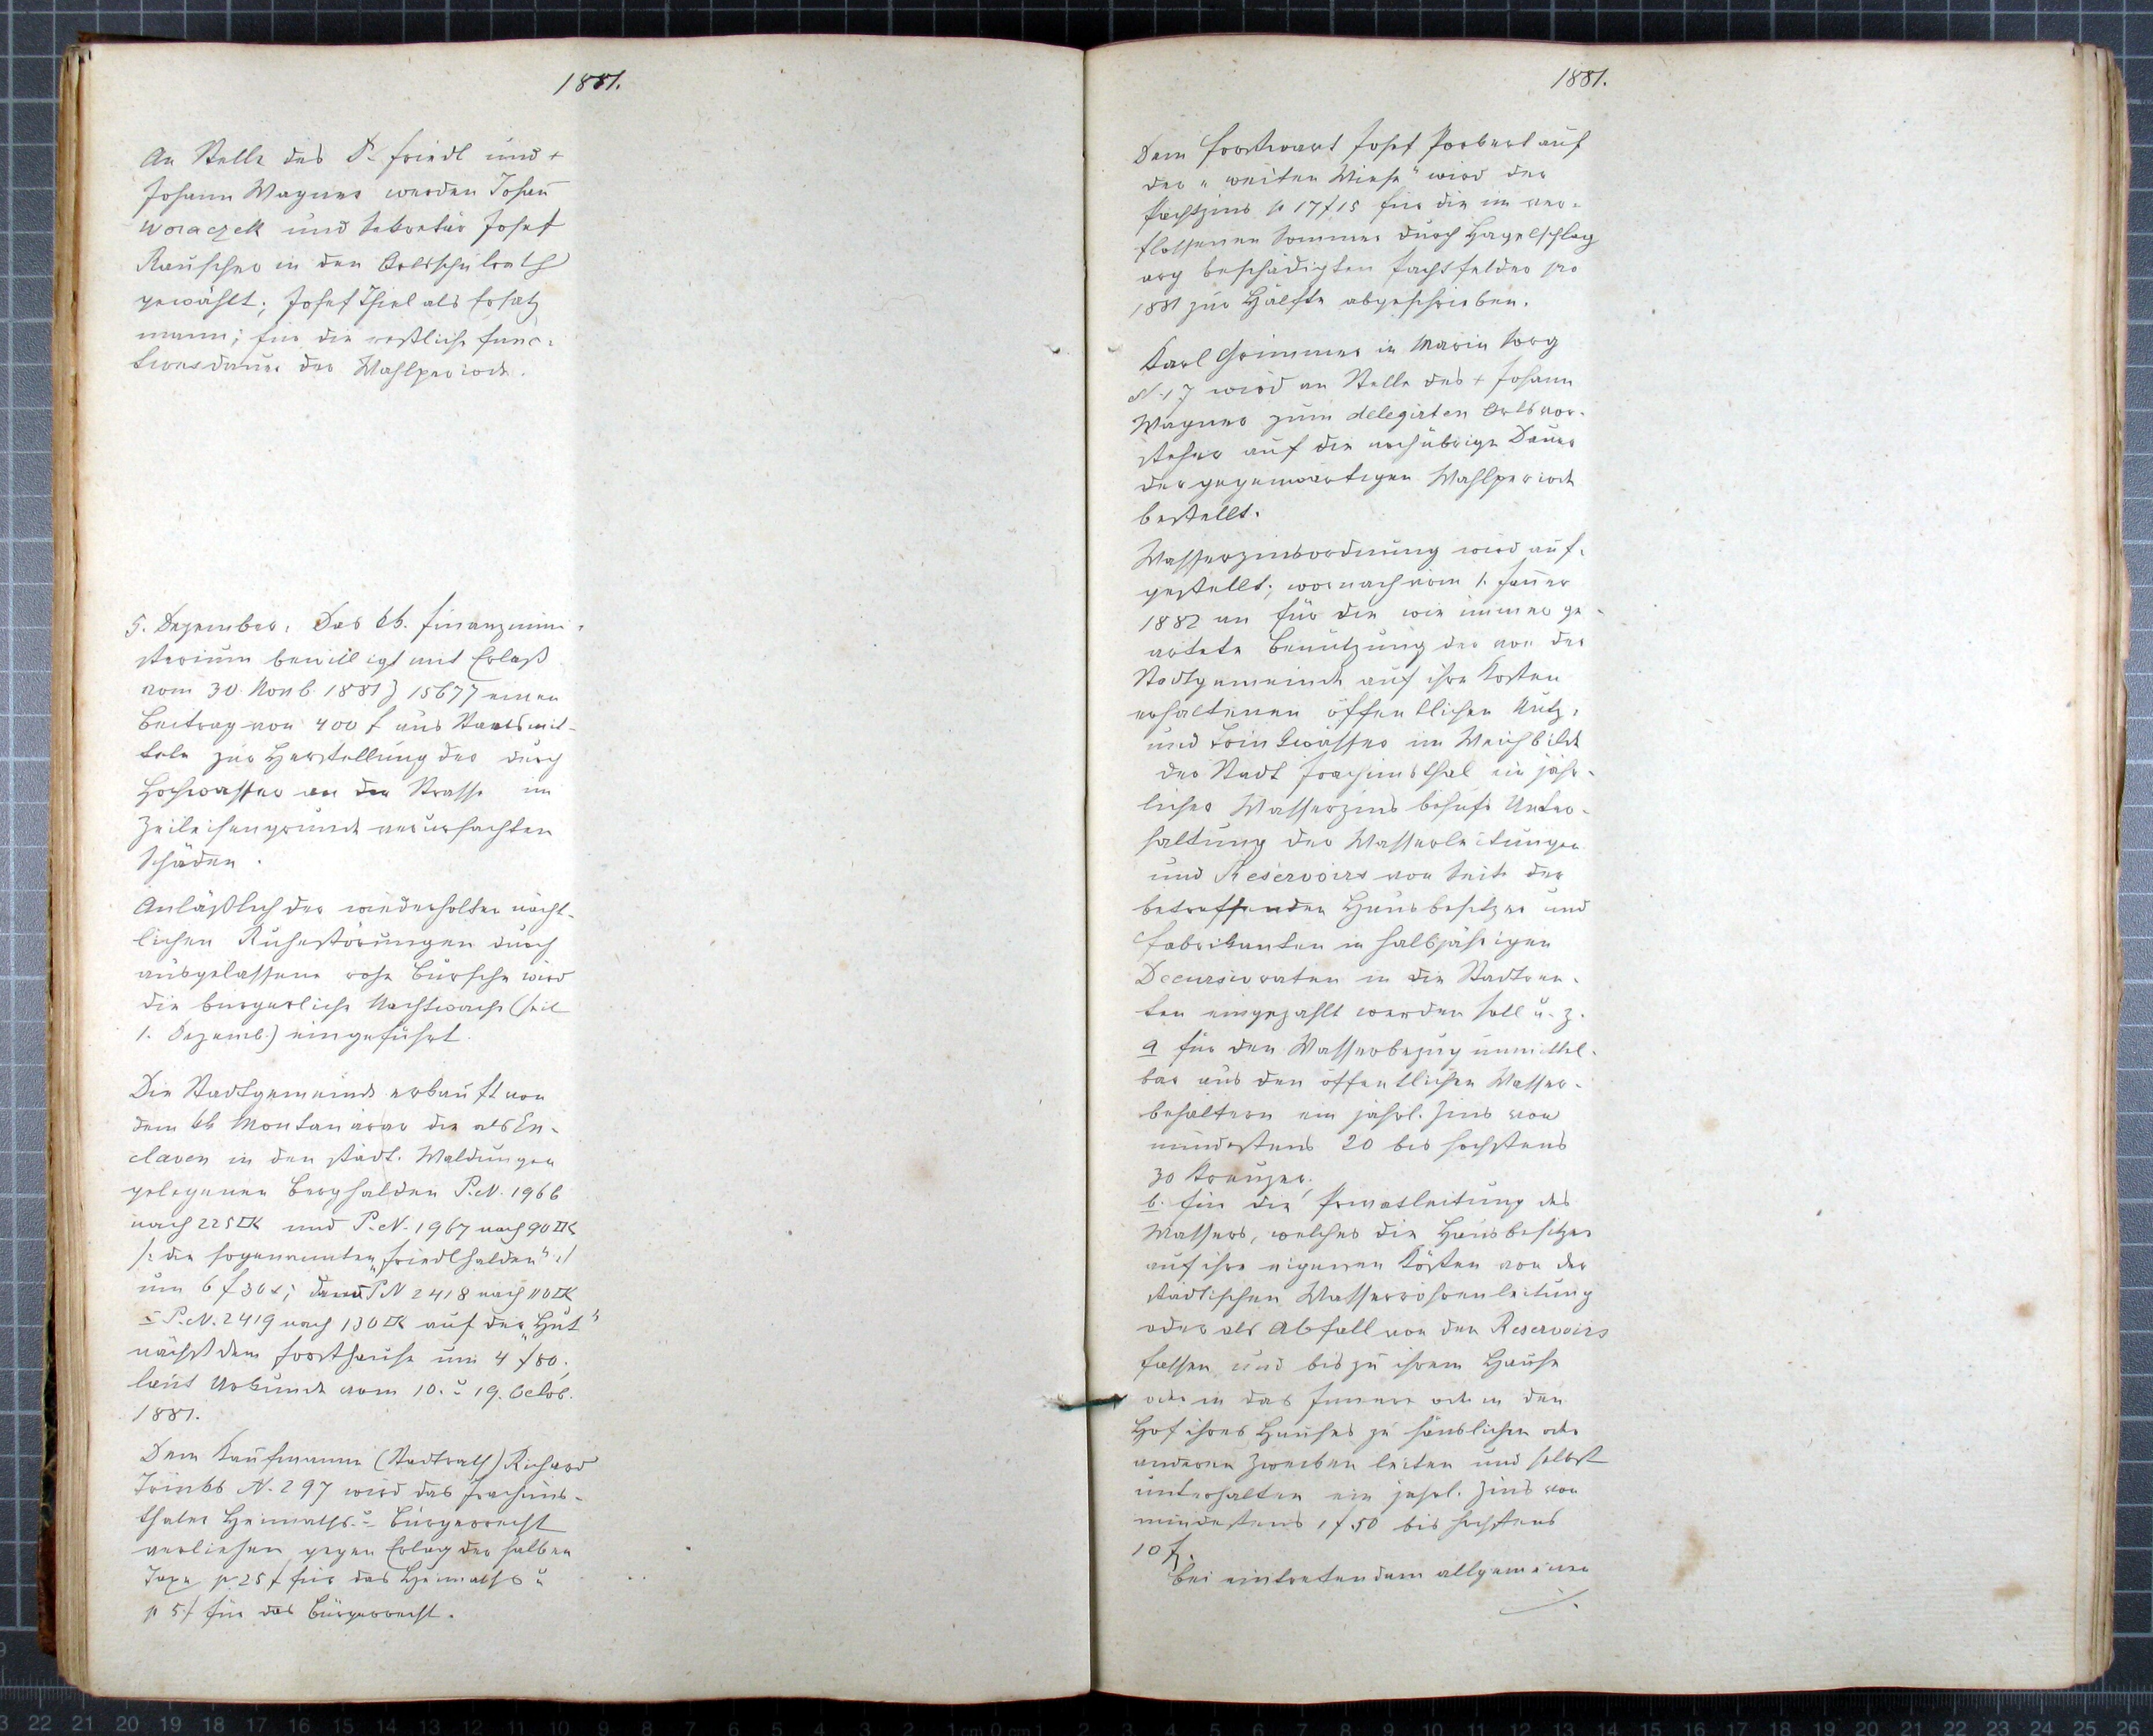 1881.
An Stelle des P. Friedl und +
Johann Wagner werden Johan̅
Woraczek und Sekretär Josef
Rauscher in den Ortsschulrath
gewählt; Josef Thiel als Ersatz
mann; für die restliche Func-
tionsdauer der Wahlperiode.
5. Dezember. Das kk. Finanzmini-
sterium bewilligt mit Erlaß
vom 30. Novb. 1881 Z 15677 einen
Beitrag von 400 f aus Staatsmit-
teln zur Herstellung der durch
Hochwasser an der Strasse im
Zeileisengrunde verursachten
Schäden.
Anläßlich der wiederholten nächt-
lichen Ruhestörungen durch
ausgelassene rohe Bursche wird
die bürgerliche Nachtwache (seit
1. Dezemb.) eingeführt.
Die Stadtgemeinde erkauft von
dem kk Montanärar die als En-
claven in den städt. Waldungen
gelegenen Berghalden P.N. 1966
nach 225 □K und P.N. 1967 nach 90 □K
/: die sogenannten „Friedlhalden" :/
um 6 f 30 x; dann P.N 2418 nach 110 □K
u P.N. 2419 nach 130 □K auf der „Hut"
nächst dem Forsthause um 4 f 80;
laut Urkunde vom 10. u 19. Octob.
1881.
Dem Kaufmanne (Stadtrath) Richard
Trinks N. 297 wird das Joachims-
thaler Heimaths- u Bürgerrecht
verliehen gegen Erlag der halben
Taxe p 25 f für das Heimaths u
p 5 f für das Bürgerrecht.
1881.
Dem Forstwart Josef Porkert auf
der „weiten Wiese" wird der
Pachtzins p 17 f 15 für die im ver-
flossenen Sommer durch Hagelschlag
arg beschädigten Pachtfelder pro
1881 zur Hälfte abgeschrieben.
Karl Grimmer in Maria Sorg
N. 17 wird an Stelle des + Johann
Wagner zum delegirten Ortsvor-
steher auf die nochübrige Dauer
der gegenwärtigen Wahlperiode
bestellt.
Wasserzinsordnung wird auf-
gestellt; wornach vom 1. Jan̅er
1882 an für die wie immer ge-
artete Benützung der von der
Stadtgemeinde auf ihre Kosten
erhaltenen öffentlichen Nutz-
und Trinkwässer im Weichbilde
der Stadt Joachimsthal ein jähr-
licher Wasserzins behufs Unter-
haltung der Wasserleitungen
und Reservoirs von Seite der
betreffenden Hausbesitzer und
Fabrikanten in halbjährigen
Decursivraten in die Stadtren-
ten eingezahlt werden soll u. z.
a für den Wasserbezug unmittel-
bar aus den öffentlichen Wasser-
behältern ein jährl. Zins von
mindestens 20 bis höchstens
30 Kreuzer.
b. für die Privatleitung des
Wassers, welches die Hausbesitzer
auf ihre eigenen Kösten von der
städtischen Wasserröhrenleitung
oder als Abfall von den Reservoirs
fassen und bis zu ihrem Hause
oder in das Innere oder in den
Hof ihres Hauses zu häuslichen oder
anderen Zwecken leiten und selbst
unterhalten ein jährl. Zins von
mindestens 1 f 50 bis höchstens
10 f.
Bei eintretendem allgemeinen
./.